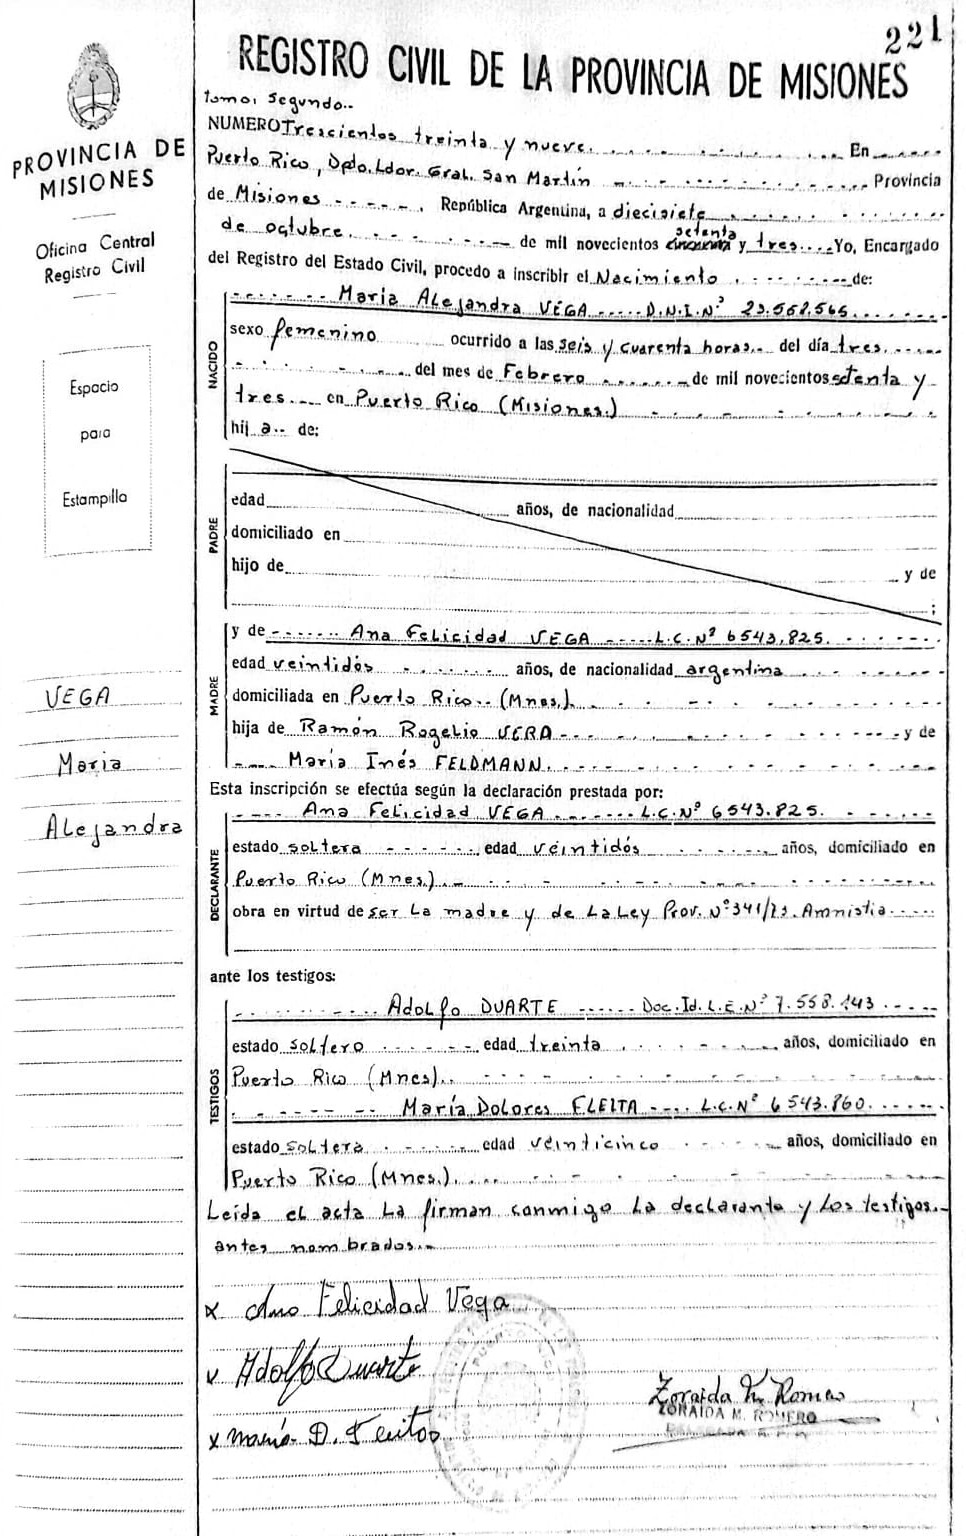 221
REGISTRO CIVIL DE LA PROVINCIA DE MISIONES
PROVINCIA DE
MISIONES
Oficina Central
Registro Civil
Espacio
para
Estampilla
VEGA
Maria
Alejandra
tomo: segundo..
NUMERO Trescientos treinta y nueve. En
Puerto Rico, Dpto. Ldor. Gral. San Martín Provincia
de Misiones República Argentina, a diecisiete
setenta
de octubre. de mil novecientos y tres. Yo, Encargado
del Registro del Estado Civil, procedo a inscribir el Nacimiento de:
NACIDO
María Alejandra VEGA D.N.I.Nº 23.568.565
sexo femenino ocurrido a las seis y cuarenta horas.. del día tres.
del mes de Febrero de mil novecientos setenta y
tres. en Puerto Rico (Misiones.)
hij a de:
PADRE
edad años, de nacionalidad
domiciliado en
hijo de y de
;
MADRE
y de Ana Felicidad VEGA L.C.Nº 6543.825.
edad veintidós años, de nacionalidad argentina
domiciliada en Puerto Rico.. (Mnes.).
hija de Ramón Rogelio VERA y de
María Inés FELDMANN.
Esta inscripción se efectúa según la declaración prestada por:
DECLARANTE
Ana Felicidad VEGA L.C.Nº 6543.825.
estado soltera edad veintidós años, domiciliado en
Puerto Rico (Mnes.).
obra en virtud de ser la madre y de la Ley Prov. Nº 341/73. Amnistia.
ante los testigos:
TESTIGOS
Adolfo DUARTE Doc. Id. L.E.Nº 7.558.143
estado soltero edad treinta años, domiciliado en
Puerto Rico (Mnes).
María Dolores FLEITA L.C.Nº 6543.860.
estado soltera edad veinticinco años, domiciliado en
Puerto Rico (Mnes.).
Leída el acta la firman conmigo la declarante y los testigos.
antes nombrados.
x Ana Felicidad Vega
x Adolfo Duarte
x maría D. Fleitas
Zoraida M. Romero
ZORAIDA M. ROMERO